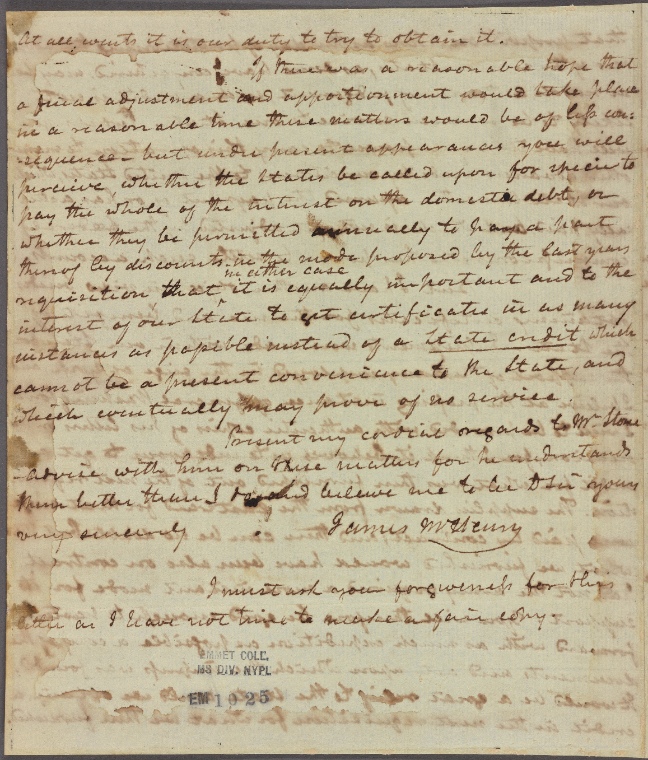 At all events it is our duty to try to obtain it.
If there was a reasonable hope that
a final adjustment and apportionment would take place
in a reasonable time these matters would be of less con-
-sequence - but under present appearances you will
perceive whether the States be called upon for specie to
pay the whole of the interest on the domestic debt, or
whether they be permitted annually to pay a part
thereof by discounts in the mode proposed by the last years
in either case
requisition that it is equally important and to the
interest of our State to get certificates in as many
instances as possible instead of a State credit which
cannot be a present convenience to the State, and
which eventually may prove of no service.
Present my cordial regards to Mr Stone
-advise with him on these matters for he understands
them better than I do and believe me to be D Sir yours
very sincerely
James McHenry
I must ask your forgiveness for this
letter as I have not time to make a fair copy.
EMMET COLL.
MS DIV. NYPL
EM 1025